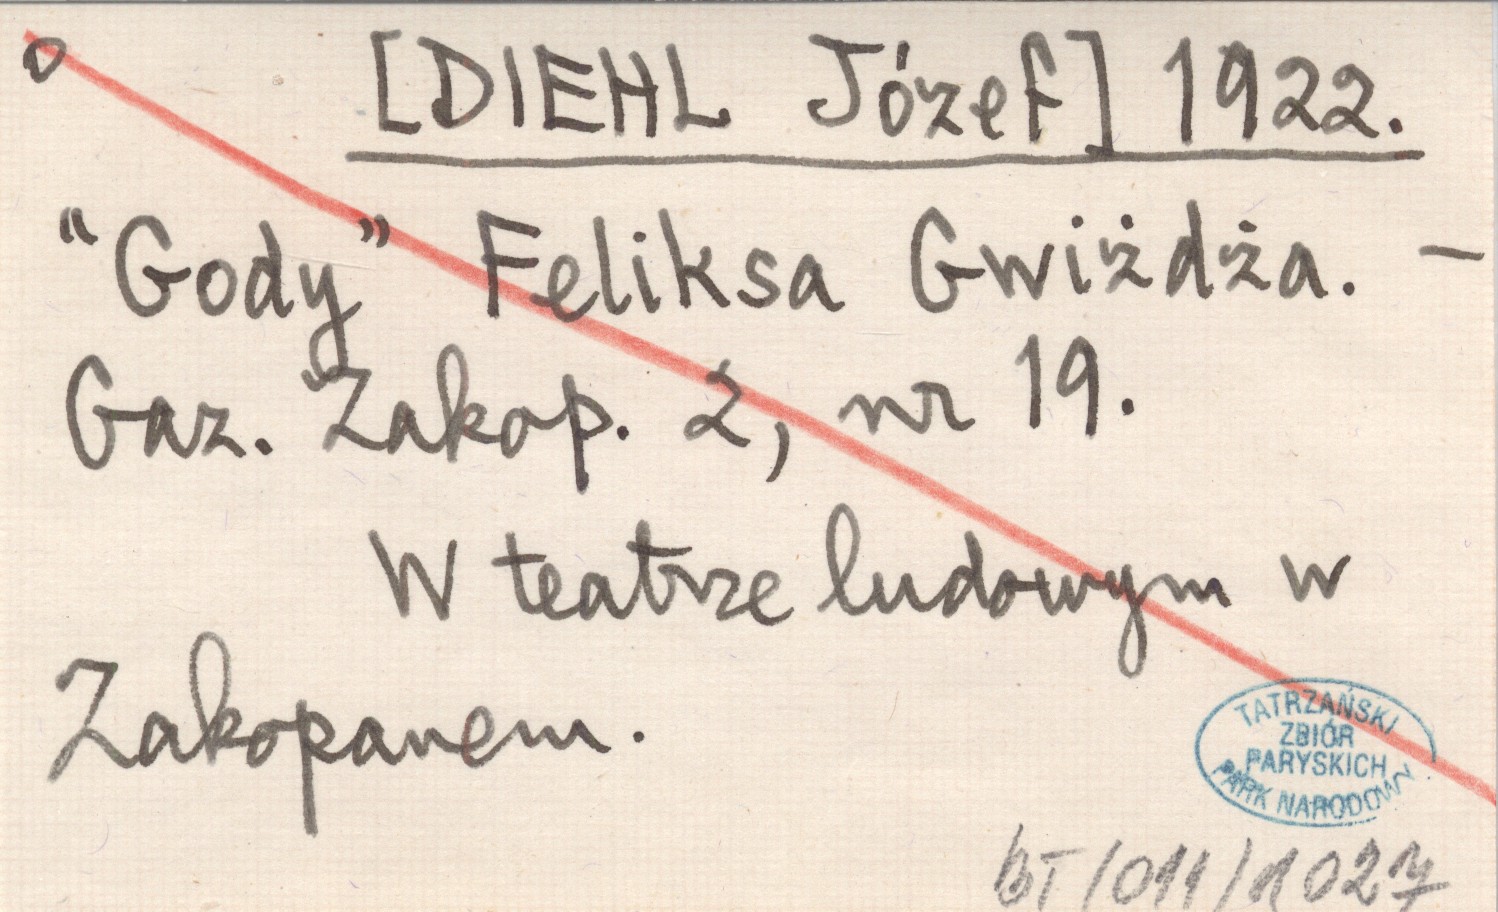 o [DIEHL Józef] 1922.
"Gody" Feliksa Gwiżdża. –
Gaz. Zakop. 2, nr 19.
W teatrze ludowym w
Zakopanem.
TATRZAŃSKI
ZBIÓR
PARYSKICH
PARK NARODOWY
bT/011/1027